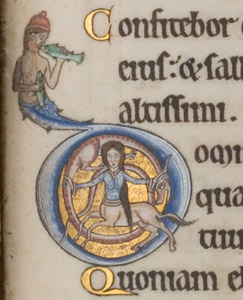 Confitebor
eius: & ſall
altiſſimi.
Dom
qua
tiu
Quoniam e